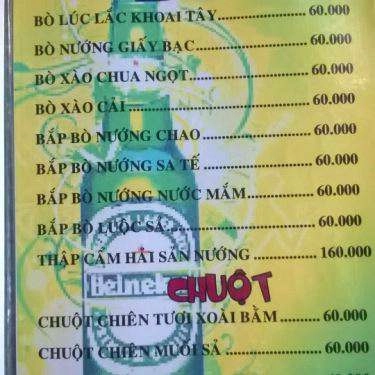 BÒ LÚC LẮC KHOAI TÂY .......... 60.000
BÒ NƯỚNG GIẤY BẠC .......... 60.000
BÒ XÀO CHUA NGỌT .......... 60.000
BÒ XÀO CẢI .......... 60.000
BẮP BÒ NƯỚNG CHAO .......... 60.000
BẮP BÒ NƯỚNG SA TẾ .......... 60.000
BẮP BÒ NƯỚNG NƯỚC MẮM .......... 60.000
BẮP BÒ LUỘC SẢ .......... 60.000
THẬP CẨM HẢI SẢN NƯỚNG .......... 160.000
Heinek
CHUỘT
CHUỘT CHIÊN TƯƠI XOÀI BẰM .......... 60.000
CHUỘT CHIÊN MUỐI SẢ .......... 60.000